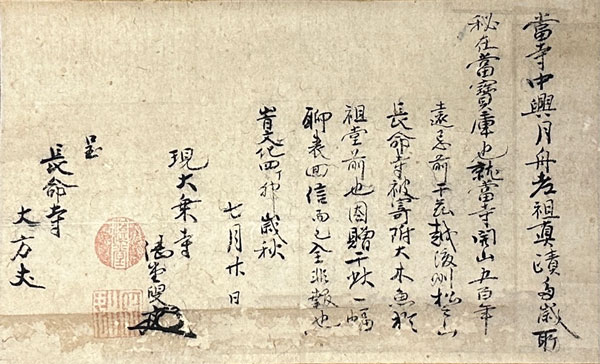 當寺中興月舟老祖真蹟多歳所
秘在當寶庫也就當寺開山五百年
遠忌前于茲越後州松之山
長命寺被寄附大木魚於
祖堂前也因贈于此一幅
聊表回信而已全非報也
旹文化四丁卯歳秋
七月廿日
現大乗寺
愚
呈
長命寺
大方丈